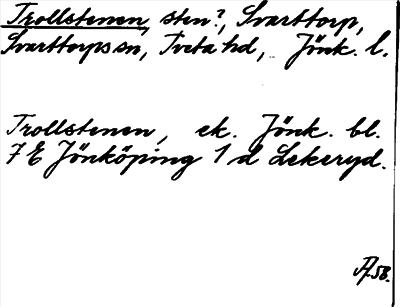 Trollstenen, sten?, Svarttorp,
Svarttorps sn, Tveta hd, Jönk. l.
Trollstenen, ek. Jönk. bl.
7 E Jönköping 1 d Lekeryd.